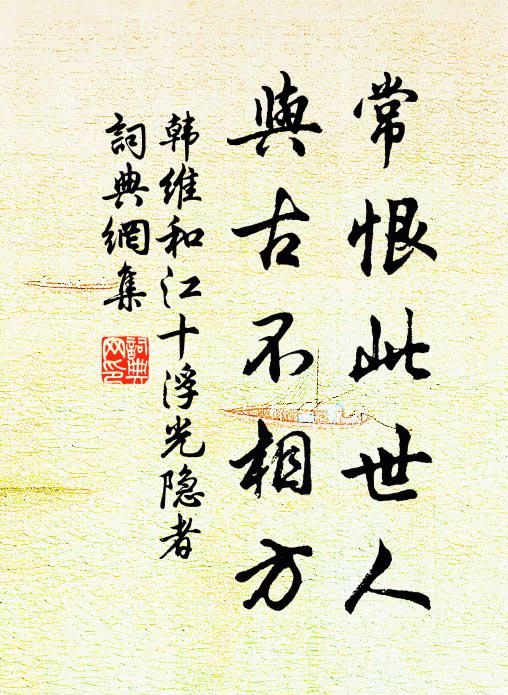 常恨此世人
與古不相方
韩維和江十浮光隐者
詞典網集
詞典网印